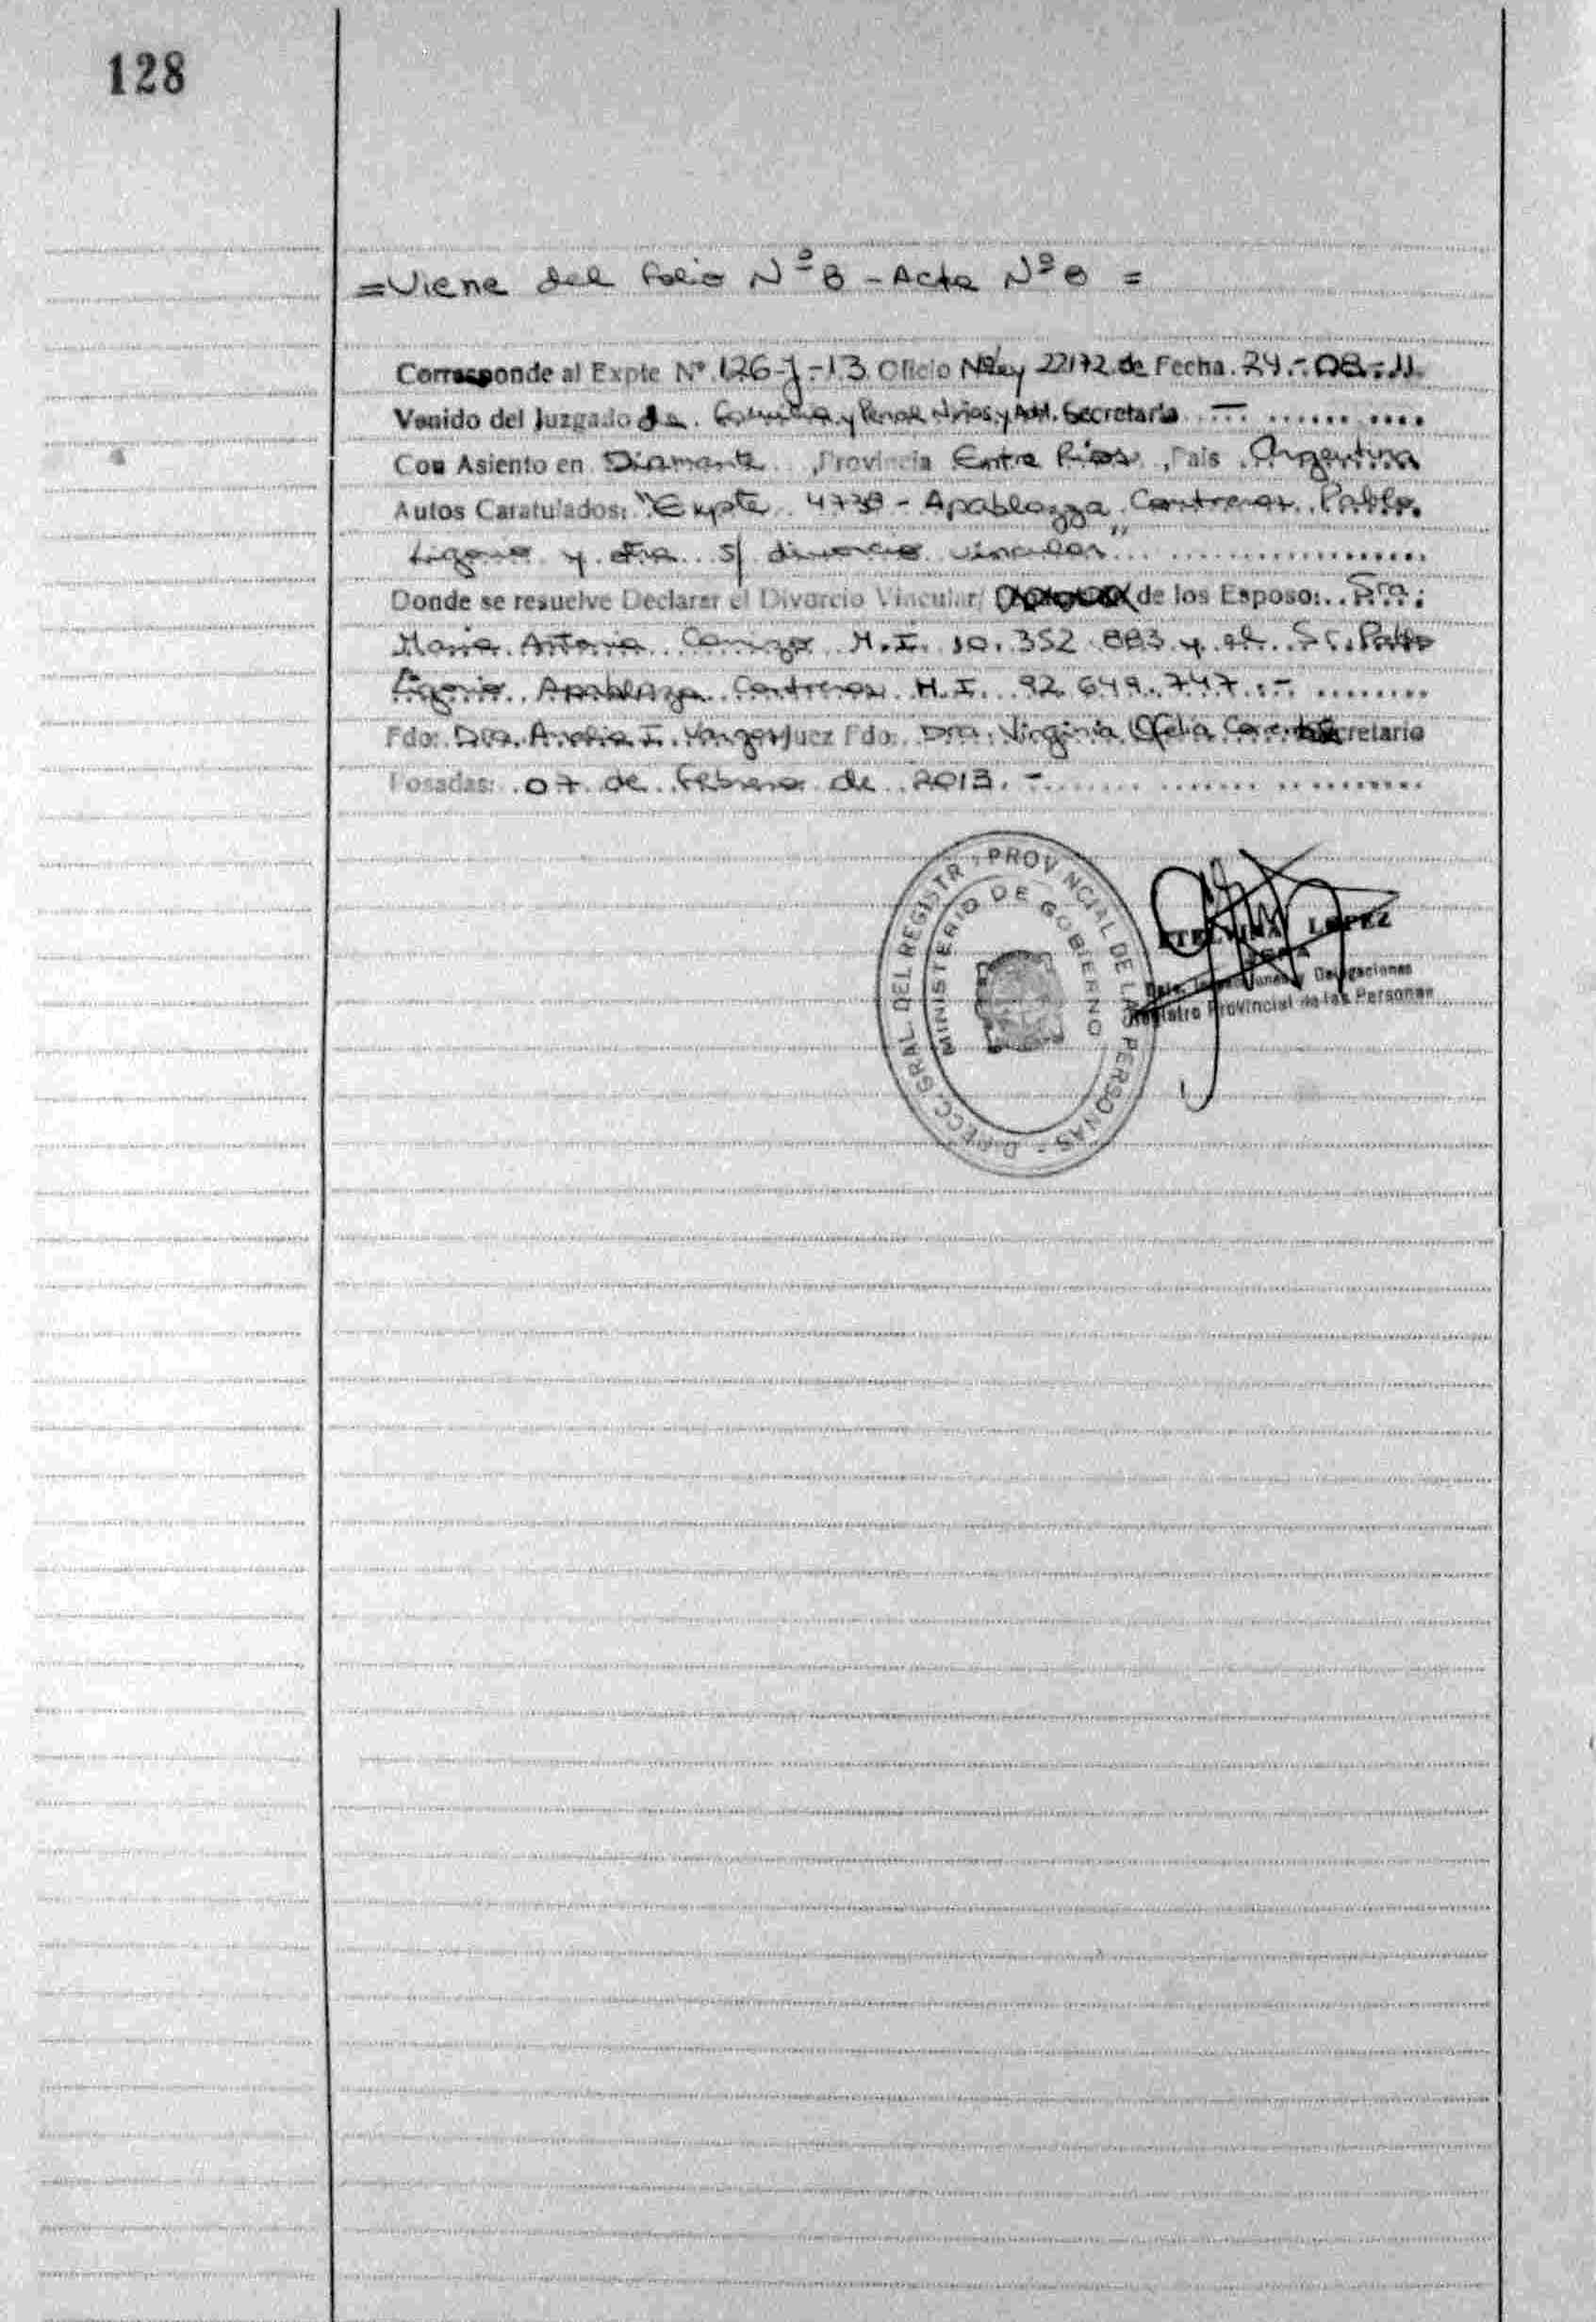 128
=Viene del folio Nº 8 - Acta Nº 8 =
Corresponde al Expte Nº 126-J-13 Oficio Nº Ley 22172 de Fecha 24-08-11
Venido del Juzgado de Familia y Penal Niños y Adol. Secretaría —
Con Asiento en Diamante, Provincia Entre Ríos, País Argentina
Autos Caratulados: "Expte 4738 - Apablazza Contreras Pablo
Ligorio y otra s/ divorcio vincular"
Donde se resuelve Declarar el Divorcio Vincular/ de los Esposo: Sra:
Maria Antonia M.I. 10.352.883 y el Sr. Pablo
Ligorio Apablaza Contreras M.I. 92.649.747.-
Fdo: Dra. I. Juez Fdo: Dra. Virginia Ofelia Secretario
Posadas: 07 de Febrero de 2013.-
DIRECC. GRAL. DEL REGISTR. PROVINCIAL DE LAS PERSONAS -
MINISTERIO DE GOBIERNO
ETELVINA LOPEZ
JEFA
Dpto. Inspecciones y Delegaciones
Registro Provincial de las Personas